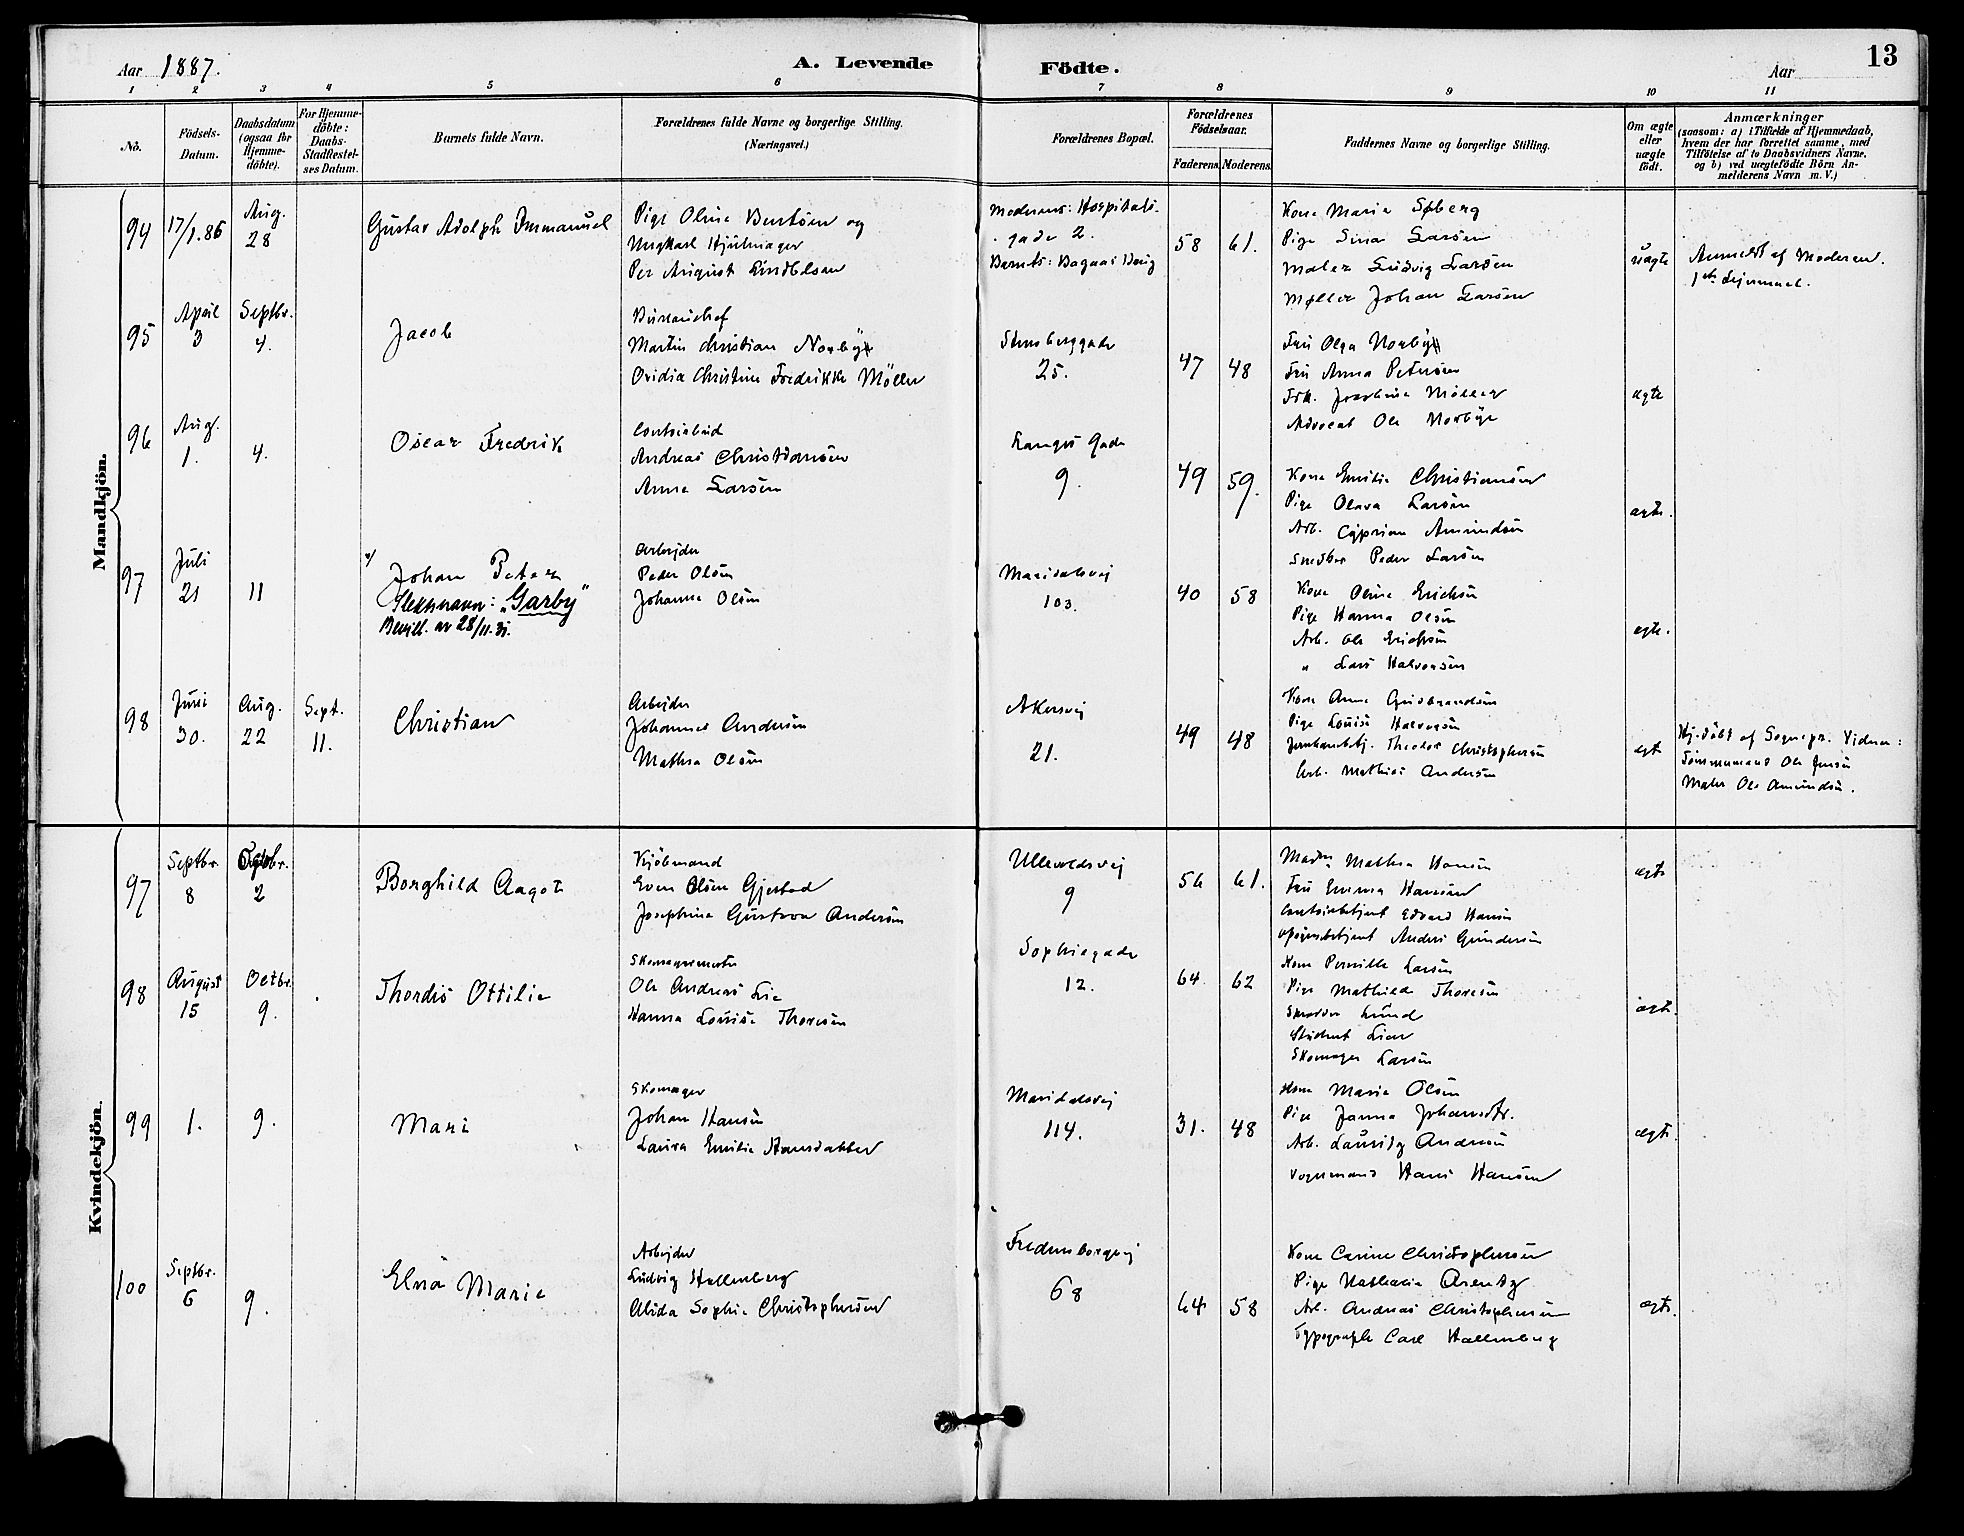 13
Aar 1887.
A. Levende Födte.
Aar
1 2 3 4 5 6 7 8 9 10 11
No.
Födsels-
Datum.
Daabsdatum
(ogsaa for
Hjemme-
döbte).
For Hjemme-
döbte:
Daabs-
Stadfestel-
ses Datum.
Barnets fulde Navn.
Forældrenes fulde Navne og borgerlige Stilling.
(Næringsvei.)
Forældrenes Bopæl.
Forældrenes
Födselsaar.
Faderens. Moderens.
Faddernes Navne og borgerlige Stilling.
Om ægte
eller
uægte
födt.
Anmærkninger
(saasom: a) i Tilfælde af Hjemmedaab,
hvem der har forrettet samme, med
Tilföielse af to Daabsvidners Navne,
og b) ved uegtefödte Börn An-
melderens Navn m. V.)
Mandkjön.
94
17/1.86
Aug.
28
Gustav Adolph Immanuel
Pige Oline Berntsen og
Ungkarl
Per August
Moderens: Hospitals-
gade 2.
Barnets:
58 61.
Kone Maria Søberg
Pige Sina Larsen
Maler Ludvig Larsen
Møller Johan Larsen
uægte
Anmeldt af Moderen.
1ste Leiermaal.
95
April
3
Septbr.
4.
Jacob
Bureauchef
Martin Christian Norbye
Ovidia Christine Fredrikke Möller
Stensberggade
25.
47 48
Fru Olga Norbye
Fru Anna Petersen
Frk. Josephine Möller
Advocat Ole Norbye
ægte
96
Aug.
1.
4.
Oscar Fredrik
Contoirbud
Andreas Christiansen
Anna Larsen
Langes Gade
9.
49 59.
Kone Emilie Christiansen
Pige Olava Larsen
Arb. Cyprian Amundsen
Snedker Peder Larsen
ægte.
97
Juli
21
11
Johan Peter
Slektsnavn: "Garby"
Bevill. av 28/11.31.
Arbejder
Peder Olsen
Johanne Olsen
Maridalsvej
103.
40 58
Kone Oline Ericksen
Pige Hanna Olsen
Arb. Ole Ericksen
" Lars Halvorsen
ægte.
98
Juni
30.
Aug.
22
Sept.
11.
Christian
Arbejder
Johannes Andersen
Mathea Olsen
Akersvej
21.
49 48
Kone Anne Gulbrandsen
Pige Louise Halvorsen
Theodor Christophersen
Arb. Mathias Andersen
ægt
Hj.döbt af Sognepr. Vidner:
Tømmermand Ole Jensen
Maler Ole Amundsen.
Kvindekjön.
97
Septbr.
8
Octbr.
2
Borghild Aagot
Kjöbmand
Even Olsen Gjestad
Josephine Gustava Andersen
Ullevoldsvej
9
56 61.
Madm Mathea Hansen
Fru Emma Hansen
Contoirbetjent Edvard Hansen
Anders Gundersen
ægte
98
August
15
Octbr.
9.
Thordis Ottilie
Skomagermester
Ole Andreas Lie
Hanna Louise Thoresen
Sophiegade
12.
64. 62
Kone Pernille Larsen
Pige Mathilde Thoresen
Skrædder Lund
Student Lier
Skomager Larsen
ægte.
99
1.
9.
Mari
Skomager
Johan Hansen
Laura Emilie Hansdatter
Maridalsvej
114.
31. 48
Kone Marie Olsen
Pige Janna Johansdtr.
Arb. Lauritz Andersen
Vognmand Hans Hansen
ægte
100
Septbr.
6
9.
Elna Marie
Arbejder
Ludvig Hallenberg
Alida Sophie Christophersen
Fredensborgvej
68
64 58
Kone Carine Christophersen
Pige Nathalia Arentz
Arb. Andreas Christophersen
Typograph Carl Hallenberg
ægte.